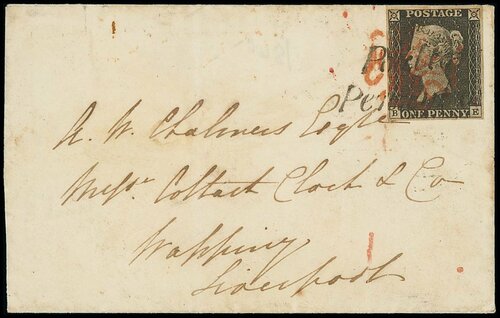 POSTAGE
Pe
B ONE PENNY E
A. W. Chalmers Esqre
Messr Collart Clock & Co
Wapping
Liverpool